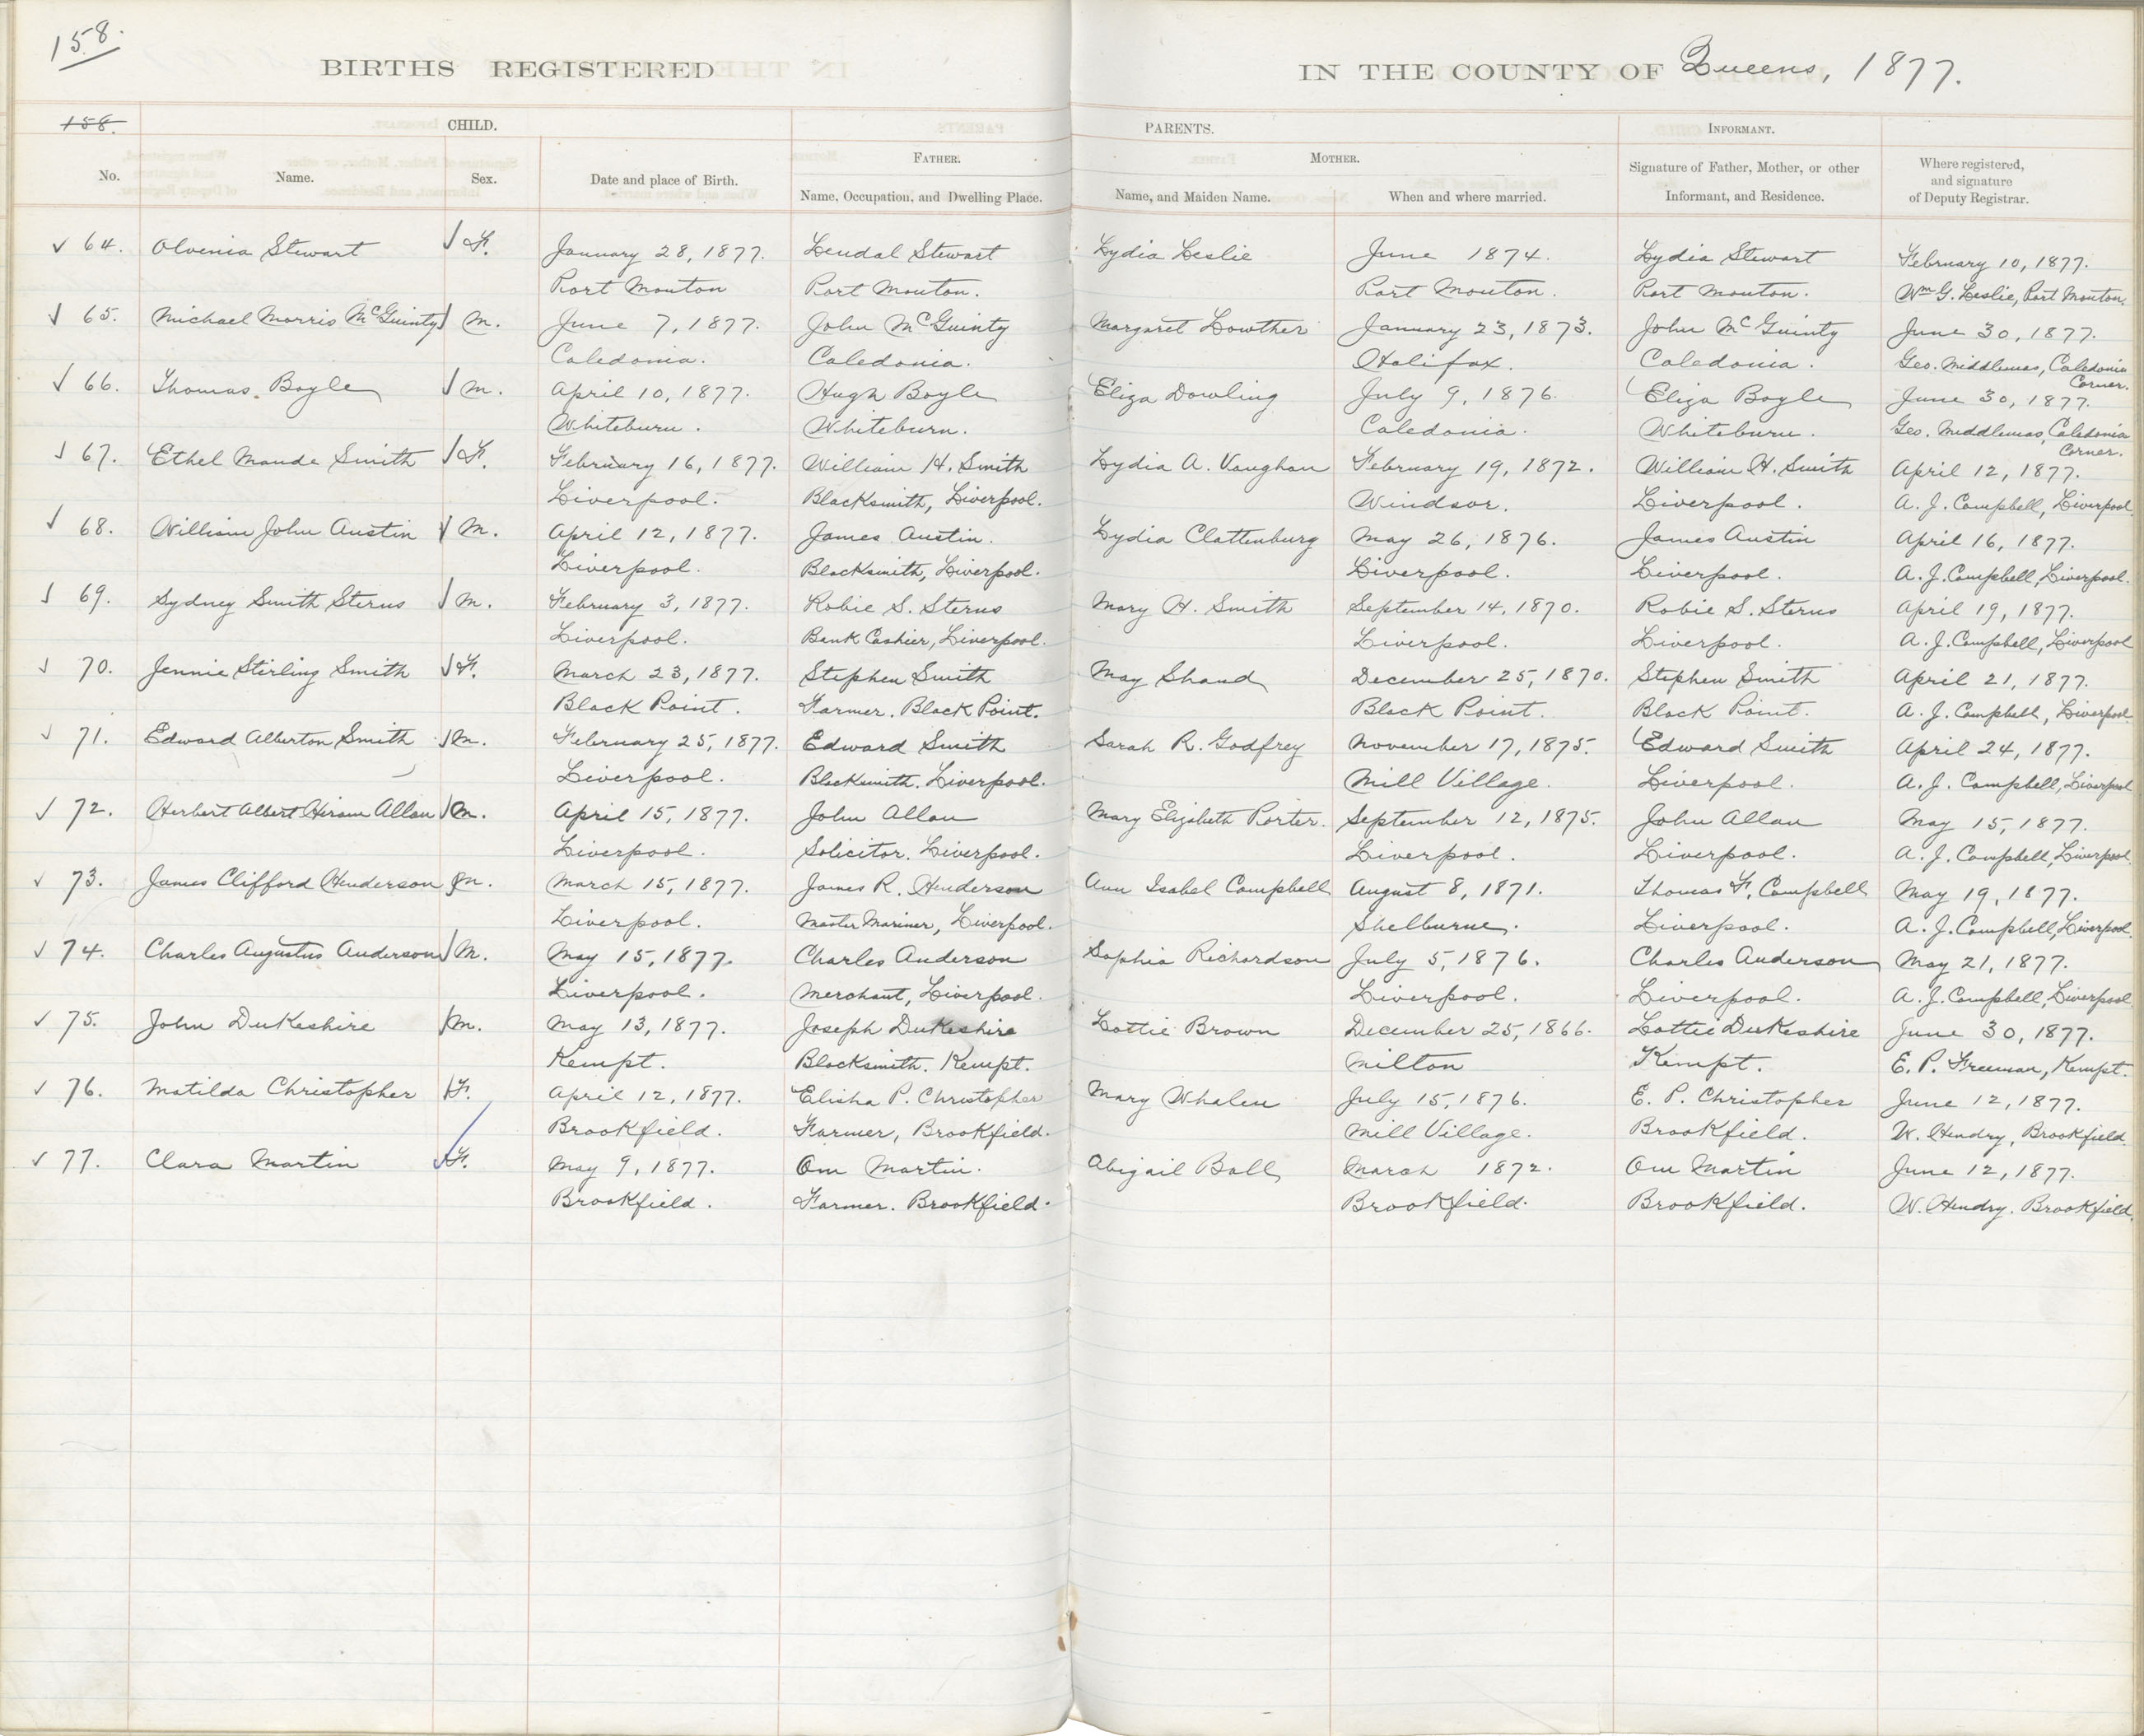 158.
BIRTHS REGISTERED IN THE COUNTY OF Queens, 1877.
158. CHILD. PARENTS. INFORMANT.
FATHER. MOTHER.
No. Name. Sex. Date and place of Birth. Name, Occupation, and Dwelling Place. Name, and Maiden Name. When and where married. Signature of Father, Mother, or other Informant, and Residence. Where registered, and signature of Deputy Registrar.
✓ 64. Olvenia Stewart ✓ F. January 28, 1877. Lendal Stewart Lydia Leslie June 1874. Lydia Stewart February 10, 1877.
Port Mouton Port Mouton. Port Mouton. Port Mouton. Wm G. Leslie, Port Mouton.
✓ 65. Michael Morris McGuinty ✓ M. June 7, 1877. John McGuinty Margaret Lowther January 23, 1873. John McGuinty June 30, 1877.
Caledonia. Caledonia. Halifax. Caledonia. Geo. Middlemas, Caledonia Corner.
✓ 66. Thomas Boyle ✓ M. April 10, 1877. Hugh Boyle Eliza Dowling July 9, 1876. Eliza Boyle June 30, 1877.
Whiteburn. Whiteburn. Caledonia. Whiteburn. Geo. Middlemas, Caledonia Corner.
✓ 67. Ethel Maude Smith ✓ F. February 16, 1877. William H. Smith Lydia A. Vaughan February 19, 1872. William H. Smith April 12, 1877.
Liverpool. Blacksmith, Liverpool. Windsor. Liverpool. A. J. Campbell, Liverpool.
✓ 68. William John Austin ✓ M. April 12, 1877. James Austin. Lydia Clattenburg May 26, 1876. James Austin April 16, 1877.
Liverpool. Blacksmith, Liverpool. Liverpool. Liverpool. A. J. Campbell, Liverpool.
✓ 69. Sydney Smith Sterns ✓ M. February 3, 1877. Robie S. Sterns Mary H. Smith September 14, 1870. Robie S. Sterns April 19, 1877.
Liverpool. Bank Cashier, Liverpool. Liverpool. Liverpool. A. J. Campbell, Liverpool
✓ 70. Jennie Stirling Smith ✓ F. March 23, 1877. Stephen Smith May Shand December 25, 1870. Stephen Smith April 21, 1877.
Black Point. Farmer. Black Point. Black Point. Black Point. A. J. Campbell, Liverpool
✓ 71. Edward Alberton Smith ✓ M. February 25, 1877. Edward Smith Sarah R. Godfrey November 17, 1875. Edward Smith April 24, 1877.
Liverpool. Blacksmith. Liverpool. Mill Village. Liverpool. A. J. Campbell, Liverpool
✓ 72. Herbert Albert Hiram Allan ✓ M. April 15, 1877. John Allan Mary Elizabeth Porter. September 12, 1875. John Allan May 15, 1877.
Liverpool. Solicitor. Liverpool. Liverpool. Liverpool. A. J. Campbell, Liverpool
✓ 73. James Clifford Henderson ✓ M. March 15, 1877. James R. Henderson Ann Isabel Campbell August 8, 1871. Thomas F. Campbell May 19, 1877.
Liverpool. Master Mariner, Liverpool. Shelburne. Liverpool. A. J. Campbell, Liverpool.
✓ 74. Charles Augustus Anderson ✓ M. May 15, 1877. Charles Anderson Sophia Richardson July 5, 1876. Charles Anderson May 21, 1877.
Liverpool. Merchant, Liverpool. Liverpool. Liverpool. A. J. Campbell, Liverpool
✓ 75. John DuKeshire ✓ M. May 13, 1877. Joseph DuKeshire Lottie Brown December 25, 1866. Lottie DuKeshire June 30, 1877.
Kempt. Blacksmith. Kempt. Milton Kempt. E. P. Freeman, Kempt.
✓ 76. Matilda Christopher ✓ F. April 12, 1877. Elisha P. Christopher Mary Whalen July 15, 1876. E. P. Christopher June 12, 1877.
Brookfield. Farmer, Brookfield. Mill Village. Brookfield. W. Hendry, Brookfield.
✓ 77. Clara Martin ✓ F. May 9, 1877. Om Martin. Abigail Ball March 1872. Om Martin June 12, 1877.
Brookfield. Farmer. Brookfield. Brookfield. Brookfield. W. Hendry. Brookfield.